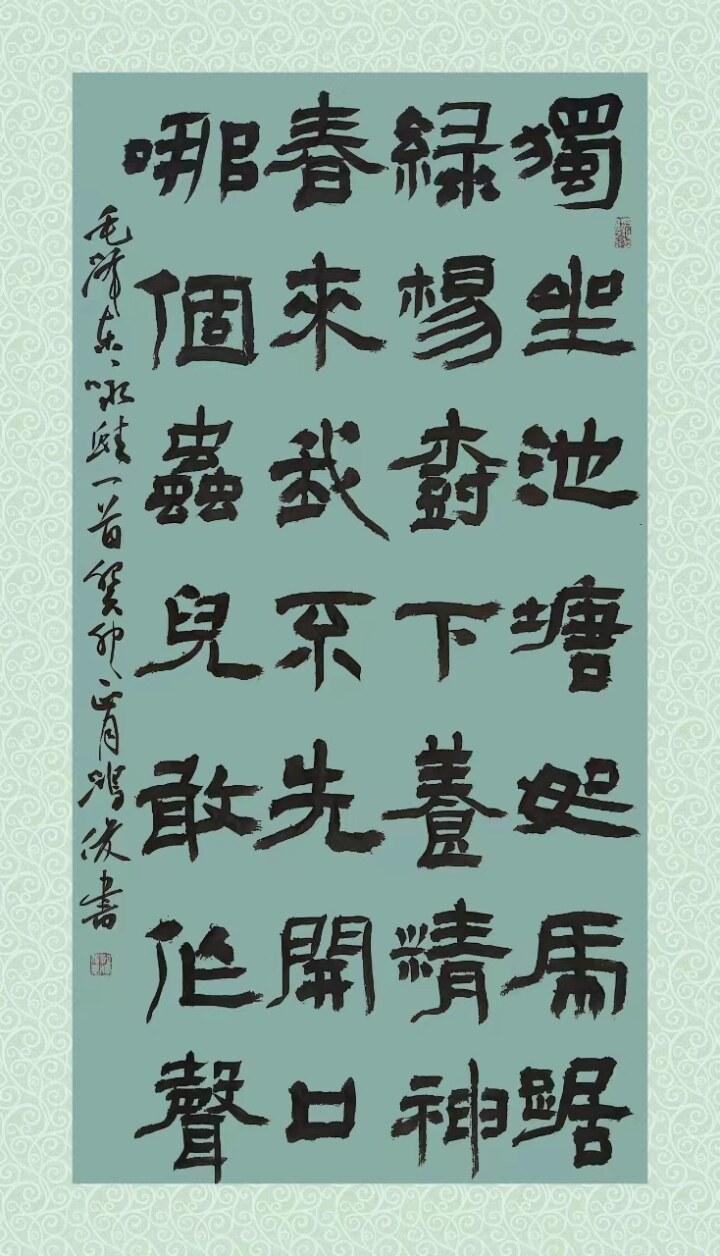 獨坐池塘如虎踞
緑楊樹下養精神
春來我不先開口
哪個蟲兒敢作聲
毛泽东咏蛙一首癸卯正月鴻俊書